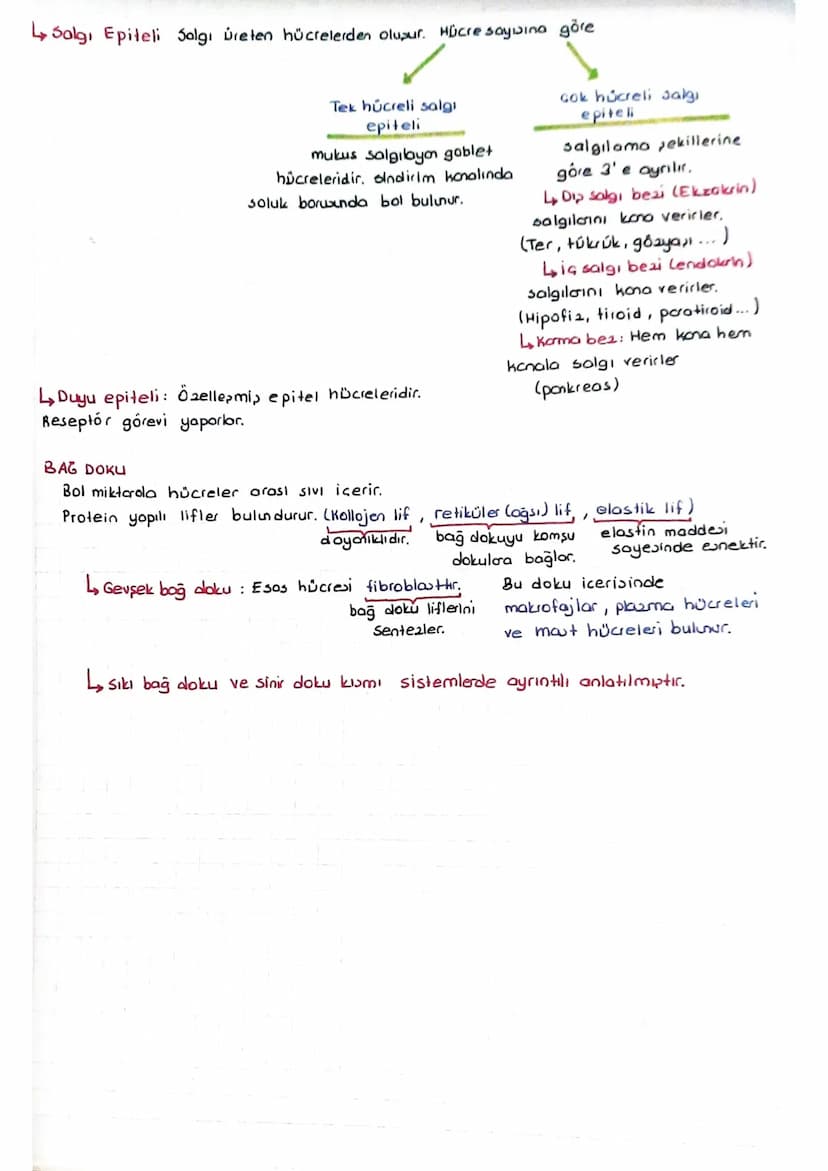 ↳ Salgı Epiteli Salgı üreten hücrelerden oluşur. Hücre sayısına göre
Tek hücreli salgı
epiteli
mukus salgılayan goblet
hücreleridir. Sindirim kanalında
soluk borusunda bol bulunur.
Çok hücreli salgı
epiteli
salgılama şekillerine
göre 3'e ayrılır.
↳ Dış salgı bezi (Ekzokrin)
salgılarını kana verirler.
(Ter, tükrük, gözyaşı ... )
↳ iç salgı bezi (endokrin)
salgılarını kana verirler.
(Hipofiz, tiroid, paratiroid...)
↳ Karma bez: Hem kana hem
kanala salgı verirler
(pankreas)
↳ Duyu epiteli: Özelleşmiş epitel hücreleridir.
Reseptör görevi yaparlar.
BAĞ DOKU
Bol miktarda hücreler arası sıvı içerir.
Protein yapılı lifler bulundurur. (Kollojen lif, retiküler (ağsı) lif, elastik lif)
dayanıklıdır.
bağ dokuyu komşu
dokulara bağlar.
elastin maddesi
sayesinde esnektir.
↳ Gevşek bağ doku : Esas hücresi fibroblasttır.
bağ doku liflerini
sentezler.
Bu doku içerisinde
makrofajlar, plazma hücreleri
ve mast hücreleri bulunur.
↳ Sıkı bağ doku ve sinir doku kısmı sistemlerde ayrıntılı anlatılmıştır.